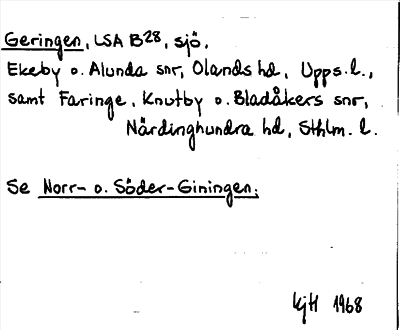 Geringen, LSA B28, sjö,
Ekeby o. Alunda snr, Olands hd, Upps. l.,
samt Faringe, Knutby o. Bladåkers snr,
Närdinghundra hd, Sthlm. l.
Se Norr- o. Söder-Giningen.
KjH 1968